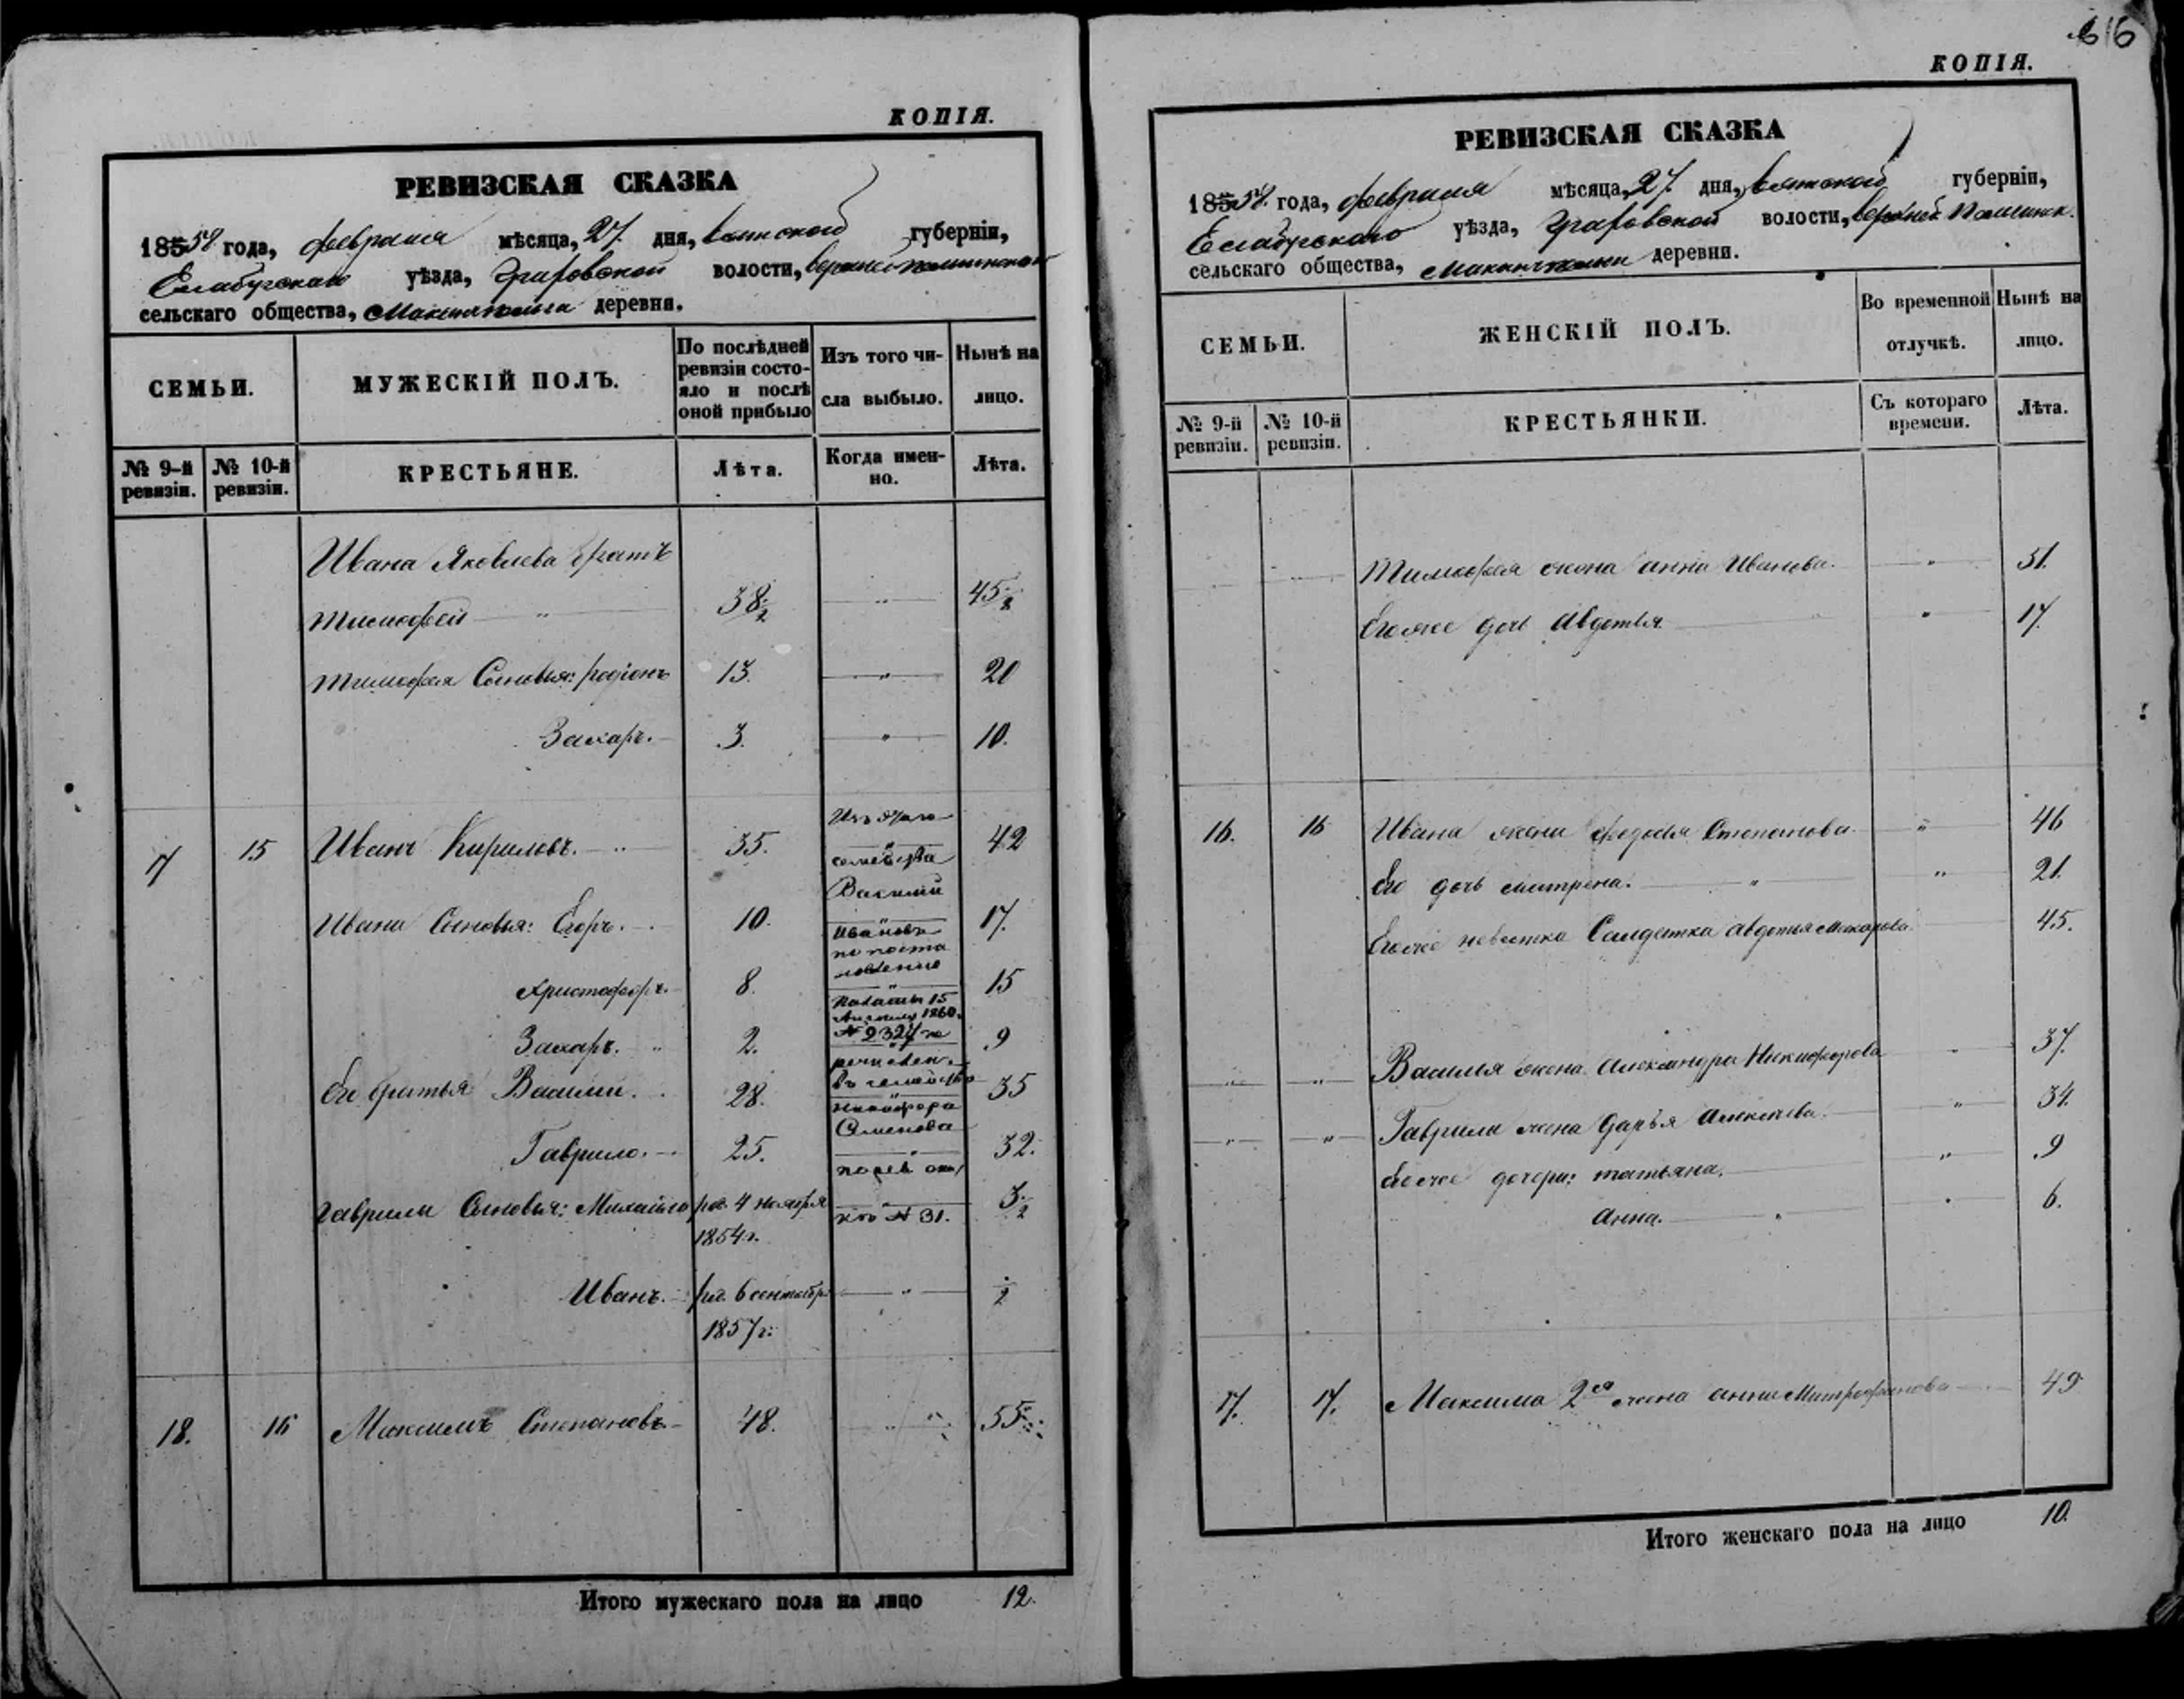 КОПІЯ.
РЕВИЗСКАЯ СКАЗКА
185558 года, февраля мѣсяца, 27. дня, Вятской губерніи,
Елабугскаго уѣзда, Граховской волости,
сельскаго общества, деревни.
СЕМЬИ.
МУЖЕСКІЙ ПОЛЪ.
По послѣдней ревизіи состояло и послѣ оной прибыло
Изъ того числа выбыло.
Нынѣ на лицо.
№ 9-й ревизіи.
№ 10-й ревизіи.
КРЕСТЬЯНЕ.
Лѣта.
Когда именно.
Лѣта.
Ивана Яковлева братъ
Тимофей 38 1/2 45 1/2
Тимофея Сыновья: Родіонъ 13. 20
Захаръ. 3. 10.
17 15 Иванъ Кириловъ. 35. 42
Ивана Сыновья: Егоръ. 10. 17.
Христофоръ. 8. 15
Захаръ. 2. 9
Его братья Василій. 28. 35
Гаврило. 25. 32.
Гаврилы Сыновья: Михайло рож. 4 ноября 1854 г. 3 1/2
Иванъ. рож. 6 сентября 1857 г. 1/2
Изъ
семейства
Василий
Ивановъ
по поста
новленію
Палаты 15
1860.
№ 2324 пе
речислен.
въ семейство
Никифора
Семенова
по рев.
№ 31.
18. 16 Максимъ Степановъ. 48. 55
Итого мужескаго пола на лицо 12.
616
КОПІЯ.
РЕВИЗСКАЯ СКАЗКА
185558. года, февраля мѣсяца, 27. дня, Вятской губерніи,
Елабугскаго уѣзда, Граховской волости,
сельскаго общества, деревни.
СЕМЬИ.
ЖЕНСКІЙ ПОЛЪ.
Во временной отлучкѣ.
Нынѣ на лицо.
№ 9-й ревизіи.
№ 10-й ревизіи.
КРЕСТЬЯНКИ.
Съ котораго времени.
Лѣта.
Тимофея жена Анна Иванова. 51.
Его же дочь Авдотья. 17.
16. 16 Ивана жена Степанова. 46
Его дочь Матрена. 21.
Его же невестка Солдатка Авдотья Макарова. 45.
Василья жена Александра Никифорова 37.
Гаврилы жена Дарья Алексеева. 34.
Его же дочери: Татьяна. 9
Анна. 6.
17. 17. Максима 2ая жена Анна Митрофанова 49
Итого женскаго пола на лицо 10.